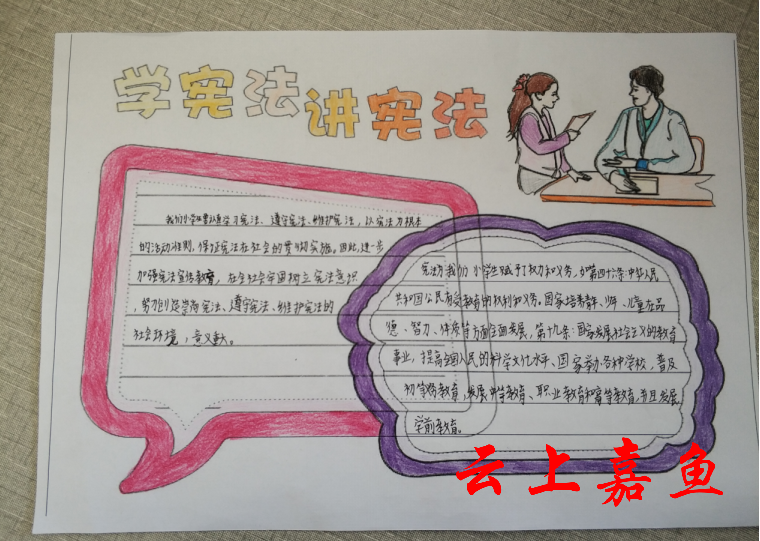 学宪法讲宪法
我们小学生要认真学习宪法、遵守宪法、维护宪法，以宪法为根本
的活动准则，保证宪法在社会的贯彻实施。因此，进一步
加强宪法宣传教育，在全社会牢固树立宪法意识
，努力创造崇尚宪法、遵守宪法、维护宪法的
社会环境，意义重大。
宪法为我们小学生赋予了权力和义务，如第四十六条:中华人民
共和国公民有受教育的权利和义务。国家培养青年、少年、儿童在品
德、智力、体质等方面全面发展，第十九条:国家发展社会主义的教育
事业，提高全国人民的科学文化水平、国家举办各种学校，普及
初等教育，发展中等教育、职业教育和高等教育，并且发展
学前教育。
云上嘉鱼